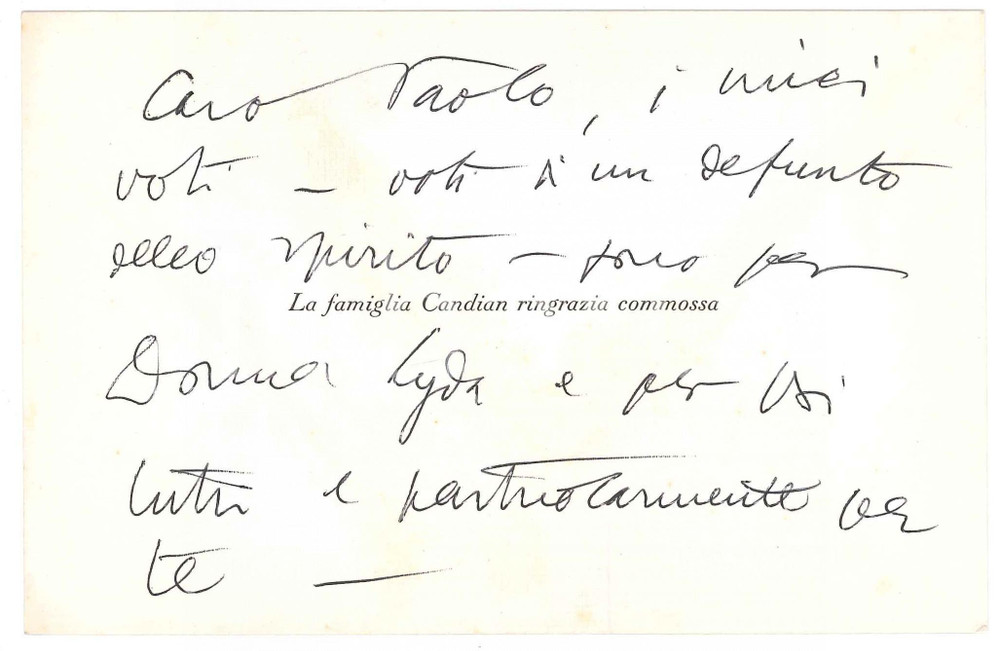 Caro Paolo, i miei
voti – voti di un defunto
dello spirito – sono per
La famiglia Candian ringrazia commossa
Donna Lyda e per Voi
tutti e particolarmente per
te —